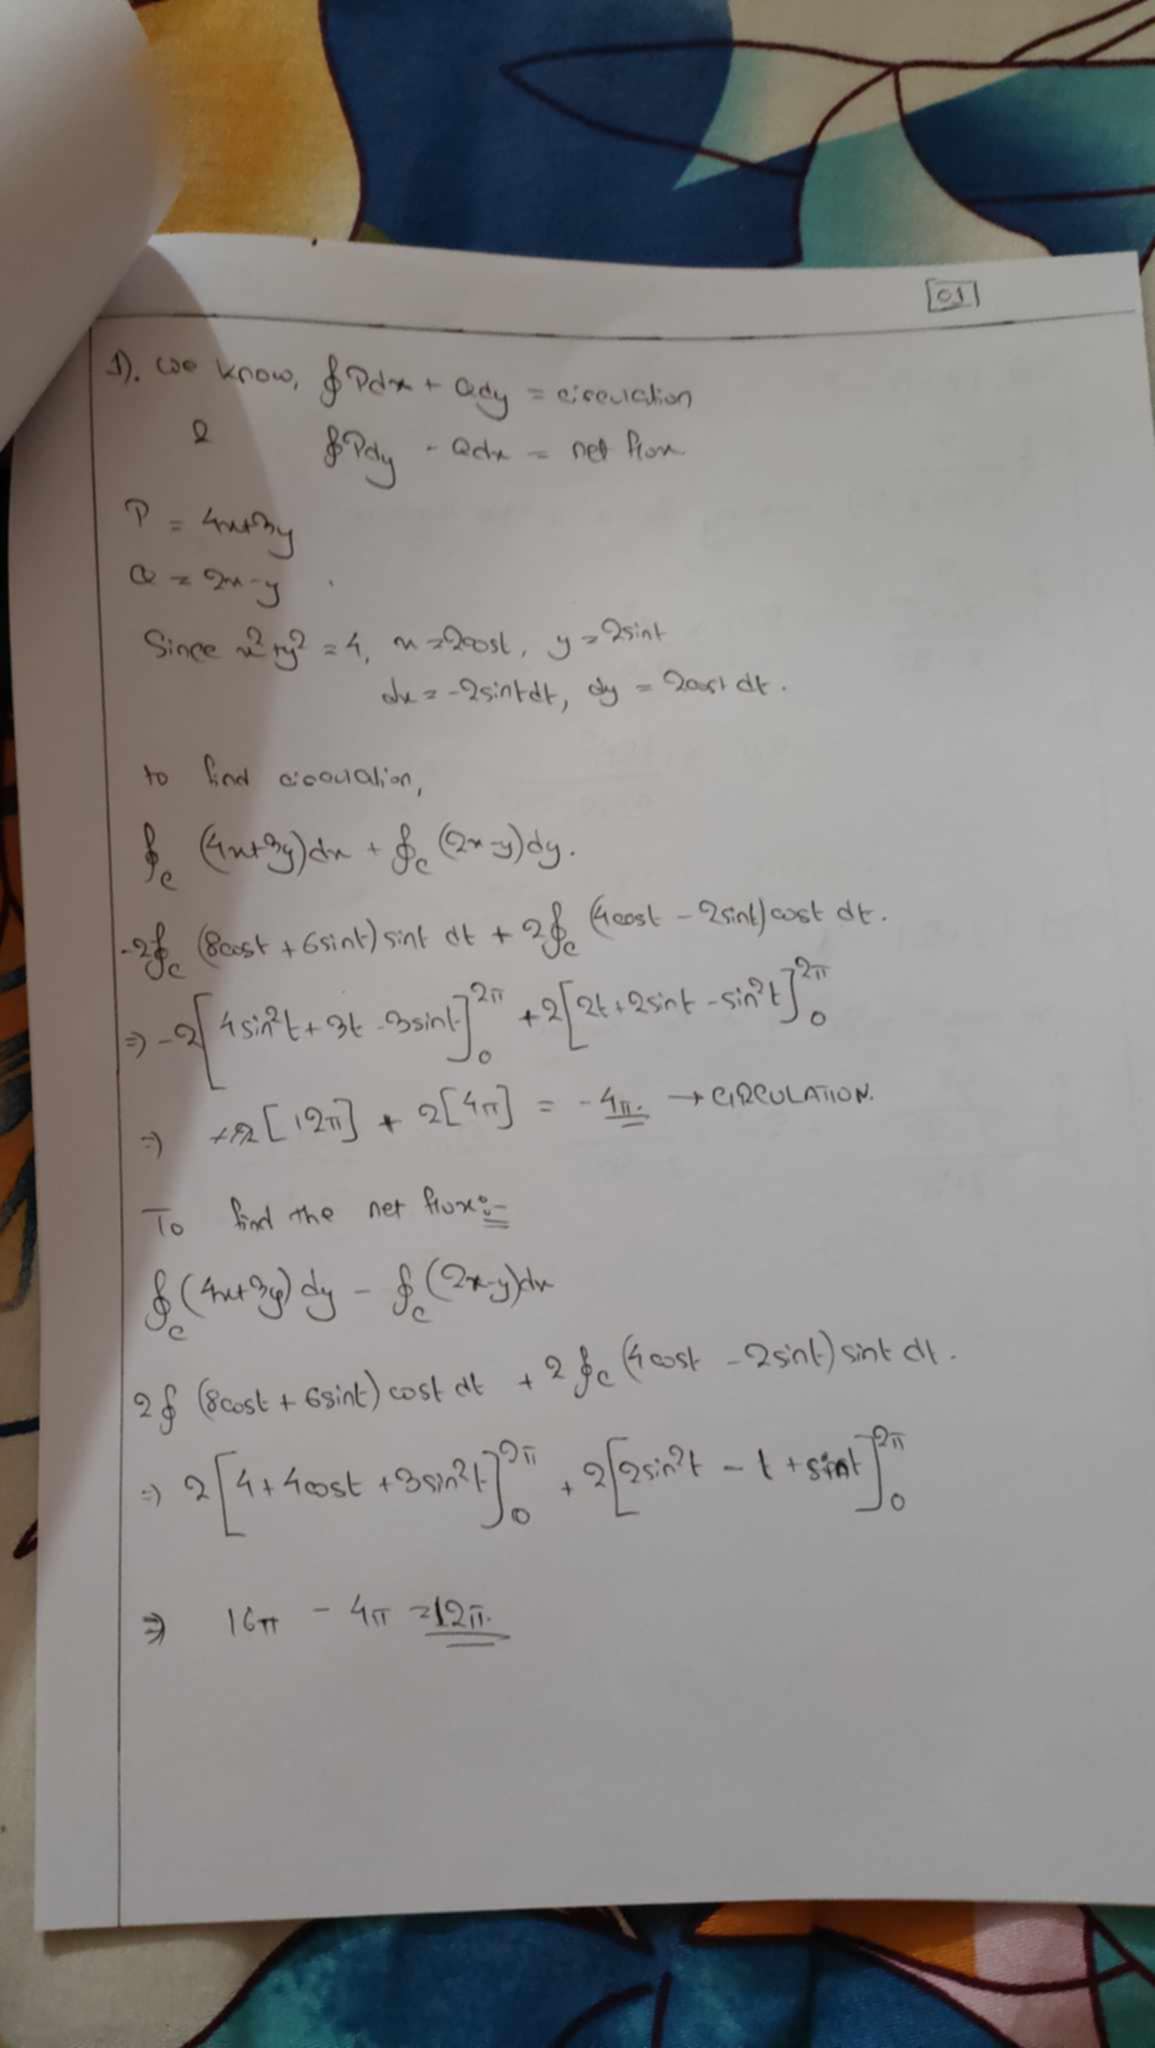 01
1). we know, ∮Pdx + Qdy = circulation
& ∮Pdy - Qdx = net flux
P = 4x+3y
Q = 2x-y
Since x²+y² = 4, x=2cost, y=2sint
dx = -2sintdt, dy = 2cost dt.
to find circulation,
∮c (4x+3y)dx + ∮c (2x-y)dy.
-2∮c (8cost + 6sint) sint dt + 2∮c (4cost - 2sint) cost dt.
⇒ -2[4sin²t + 3t - 3sint]₀^2π + 2[2t + 2sint - sin²t]₀^2π
⇒ [12π] + 2[4π] = -4π. → CIRCULATION.
To find the net flux:-
∮c (4x+3y) dy - ∮c (2x-y)dx
2∮ (8cost + 6sint) cost dt + 2∮c (4cost - 2sint) sint dt.
⇒ 2[4+4cost + 3sin²t]₀^2π + 2[2sin²t - t + sint]₀^2π
⇒ 16π - 4π = 12π.